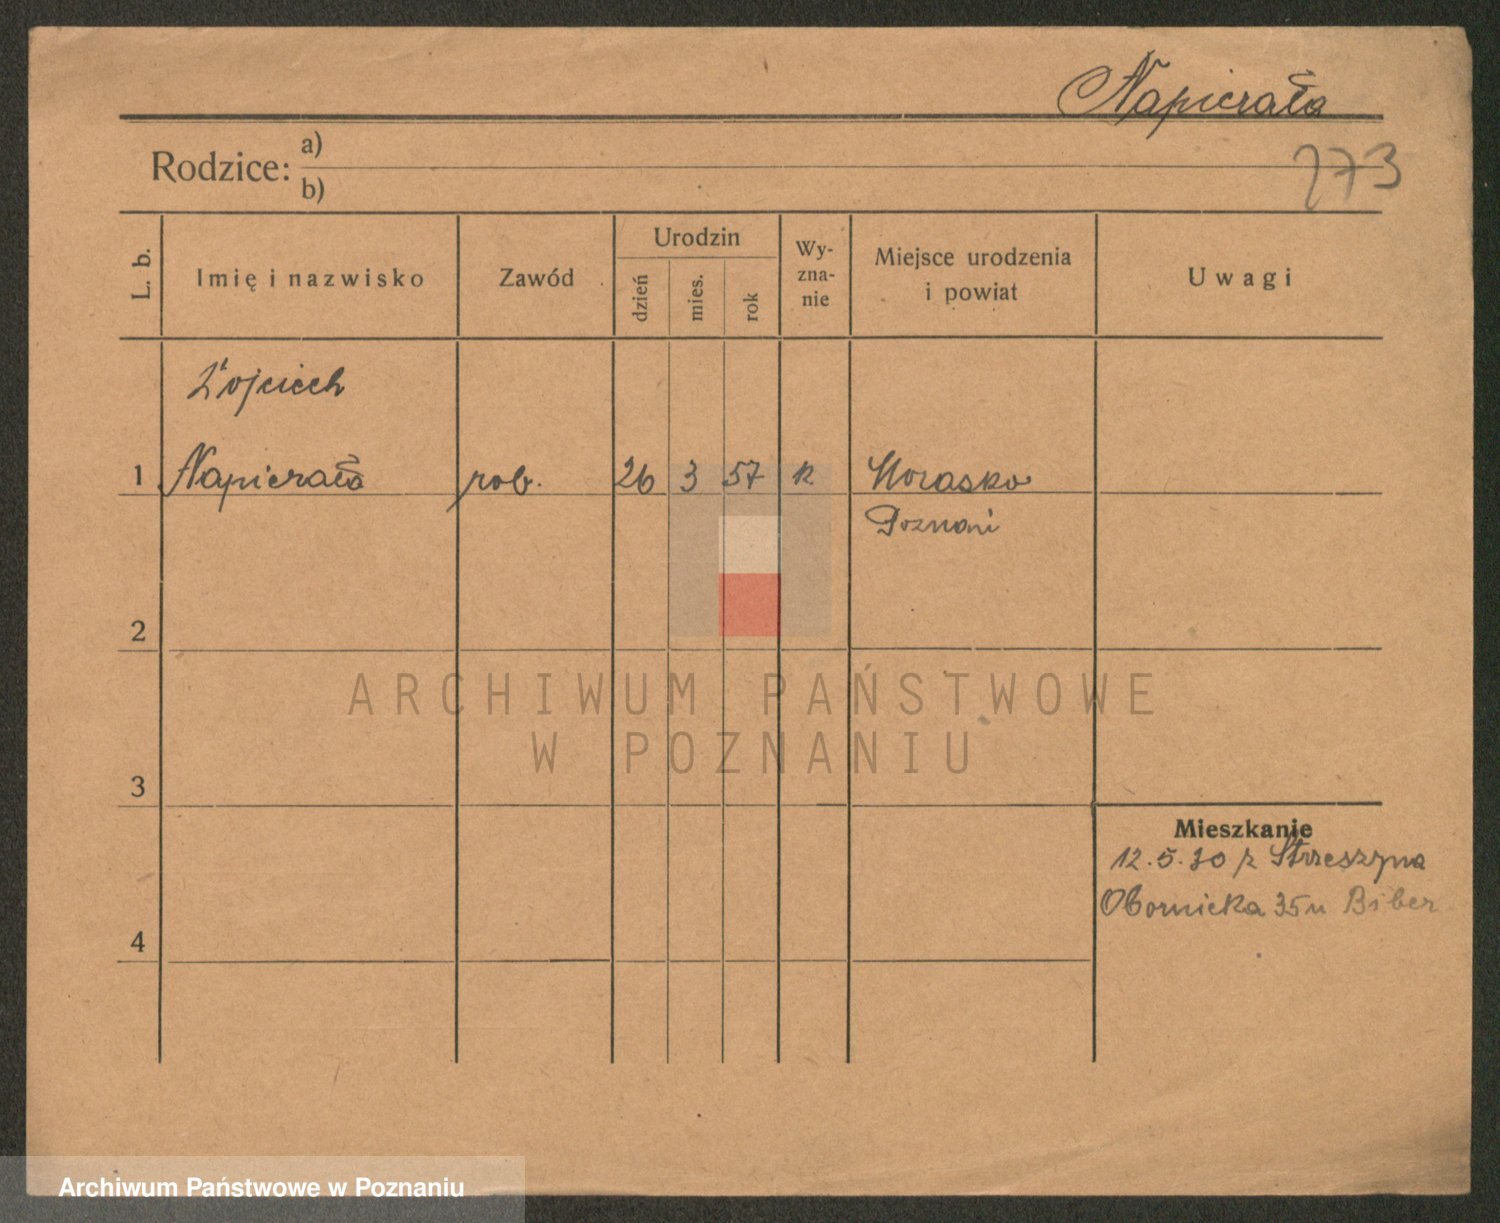 Napierała
273
Rodzice: a)
b)
L. b.
Imię i nazwisko
Zawód
Urodzin
dzień
mies.
rok
Wy-
zna-
nie
Miejsce urodzenia
i powiat
Uwagi
Wojciech
1 Napierała rob. 26 3 57 k Morasko
Poznań
2
3
4
Mieszkanie
12.5.30 z Strzeszyna
Obornicka 35 u Biber
ARCHIWUM PAŃSTWOWE
W POZNANIU
Archiwum Państwowe w Poznaniu